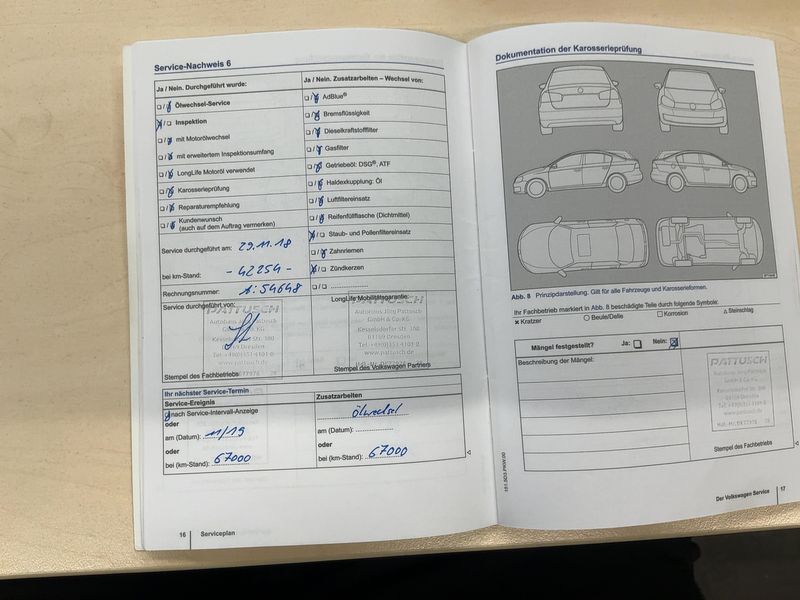 Service-Nachweis 6
Ja / Nein. Durchgeführt wurde:
Ölwechsel-Service
Inspektion
mit Motorölwechsel
mit erweitertem Inspektionsumfang
LongLife Motoröl verwendet
Karosserieprüfung
Reparaturempfehlung
Kundenwunsch
(auch auf dem Auftrag vermerken)
Service durchgeführt am: 29.11.18
bei km-Stand: - 42254 -
Rechnungsnummer: 54648
Service durchgeführt von:
PATTUSCH
Stempel des Fachbetriebs
Ja / Nein. Zusatzarbeiten – Wechsel von:
AdBlue®
Bremsflüssigkeit
Dieselkraftstofffilter
Gasfilter
Getriebeöl: DSG®, ATF
Haldexkupplung: Öl
Luftfiltereinsatz
Reifenfüllflasche (Dichtmittel)
Staub- und Pollenfiltereinsatz
Zahnriemen
Zündkerzen
LongLife Mobilitätsgarantie:
PATTUSCH
Autohaus Jörg Pattusch
GmbH & Co. KG
Kesselsdorfer Str.
01169 Dresden
www.pattusch.de
Stempel des Volkswagen Partners
Ihr nächster Service-Termin
Service-Ereignis
nach Service-Intervall-Anzeige
oder
am (Datum): 11/19
oder
bei (km-Stand): 67000
Zusatzarbeiten
Ölwechsel
am (Datum):
oder
bei (km-Stand): 67000
16 Serviceplan
Dokumentation der Karosserieprüfung
Abb. 8 Prinzipdarstellung. Gilt für alle Fahrzeuge und Karosserieformen.
Ihr Fachbetrieb markiert in Abb. 8 beschädigte Teile durch folgende Symbole:
Kratzer Beule/Delle Korrosion Steinschlag
Mängel festgestellt? Ja: Nein:
Beschreibung der Mängel:
PATTUSCH
Stempel des Fachbetriebs
Der Volkswagen Service 17